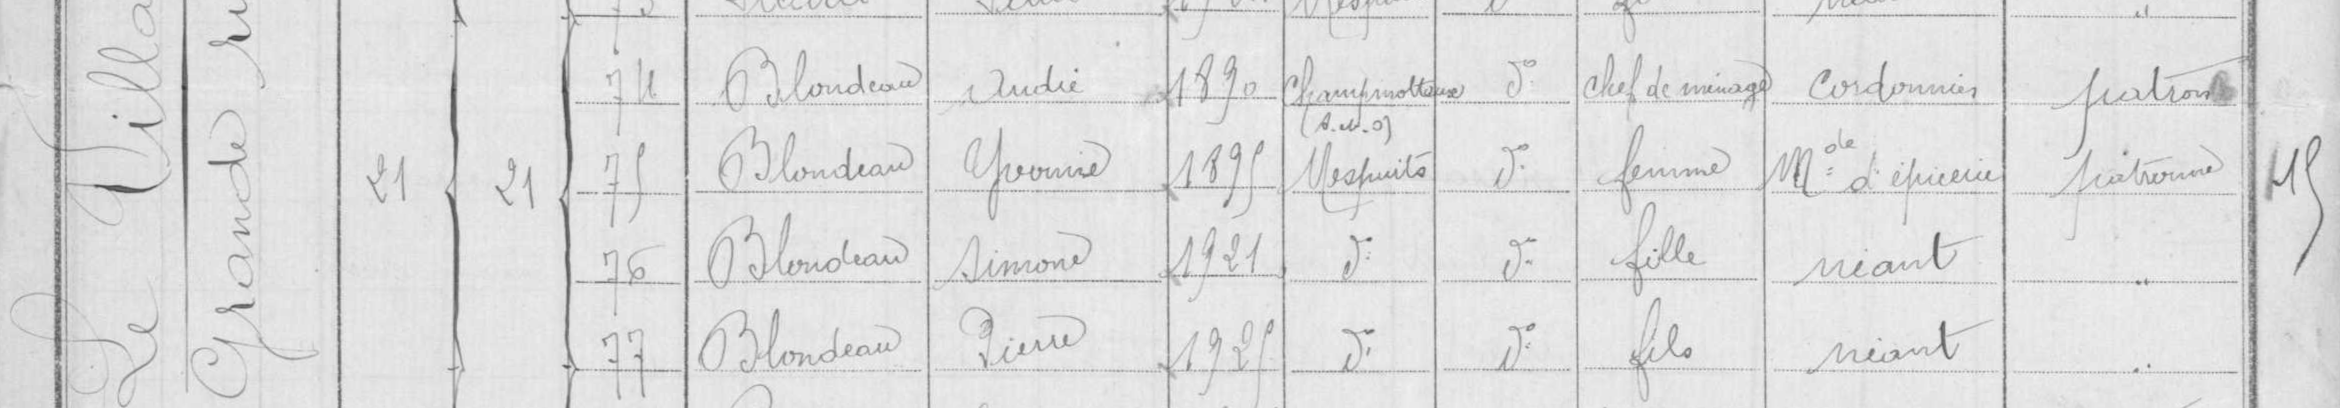 Le Villa
Grande ru
74 Blondeau André 1890 Champmotteux d° chef de ménage Cordonnier patron
21 21 (S.-et-O)
75 Blondeau Yvonne 1895 Mespuits d° femme Mde d'épicerie patronne 45
76 Blondeau Simone 1921 d° d° fille néant "
77 Blondeau Pierre 1925 d° d° fils néant "